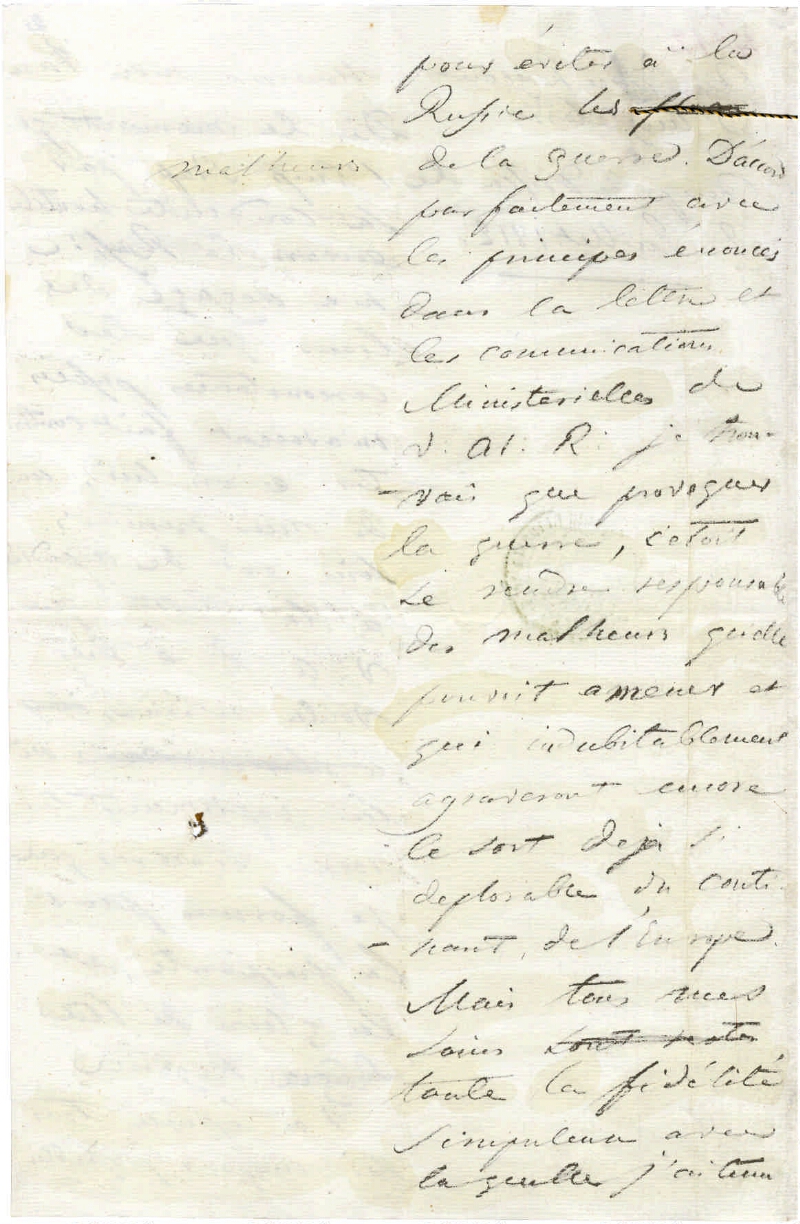 pour éviter à la
Russie les
malheurs
de la guerre. D'accord
parfaitement avec
les principes énoncés
dans la lettre et
les communications
Ministerielles de
V. A. R. je trou-
vais que provoquer
la guerre, c'étoit
se rendre responsable
des malheurs qu'elle
pouvoit amener et
qui indubitablement
agraveront encore
le sort deja si
deplorable du conti-
nant, de l'Europe.
Mais tous mes
soins sont restés
toute la fidélité
scrupuleuse avec
laquelle j'ai tenu